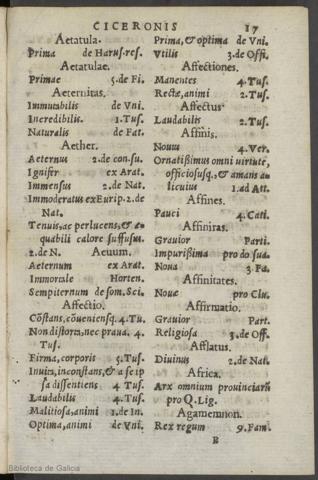 CICERONIS 17
Aetatula.
Prima de Harus.res.
Aetatulae.
Primae 5.de Fi.
Aeternitas.
Immutabilis de Vni.
Incredibilis 1.Tus.
Naturalis de Fat.
Aether.
Aeternus 2.de con.su.
Ignifer ex Arat.
Immensus 2.de Nat.
Immoderatus ex Eurip.2.de
Nat.
Tenuis, ac perlucens, & æ-
quabili calore suffusus.
2.de N. Aeuum.
Aeternum ex Arat.
Immortale Horten.
Sempiternum de som.Sci.
Affectio.
Cõstans, cõueniensq̃. 4.Tu.
Non distorta, nec praua. 4.
Tus.
Firma, corporis 5.Tus.
Inuita, inconstans, & a se ip
sa dissentiens 4. Tus.
Laudabilis 4. Tus.
Malitiosa, animi 1.de In.
Optima, animi de Vni.
Prima, & optima de Vni.
Vtilis 3.de Offi.
Affectiones.
Manentes 4. Tus.
Rectæ, animi 2. Tus.
Affectus
Laudabilis 2.Tus.
Affinis.
Nouu 4. Ver.
Ornatißimus omni uirtute,
officiosusq́, & amans a-
licuius 1.ad Att.
Affines.
Pauci 4. Cati.
Affiniras.
Grauior Parti.
Impurißima pro do sua.
Noua 3. Fa.
Affinitates.
Nouae pro Clu.
Affirmatio.
Grauior Part.
Religiosa 3.de Off.
Afflatus.
Diuinus 2.de Nat.
Africa.
Arx omnium prouinciarũ
pro Q.Lig.
Agamemnon.
Rex regum 9.Fam.
B
Biblioteca de Galicia